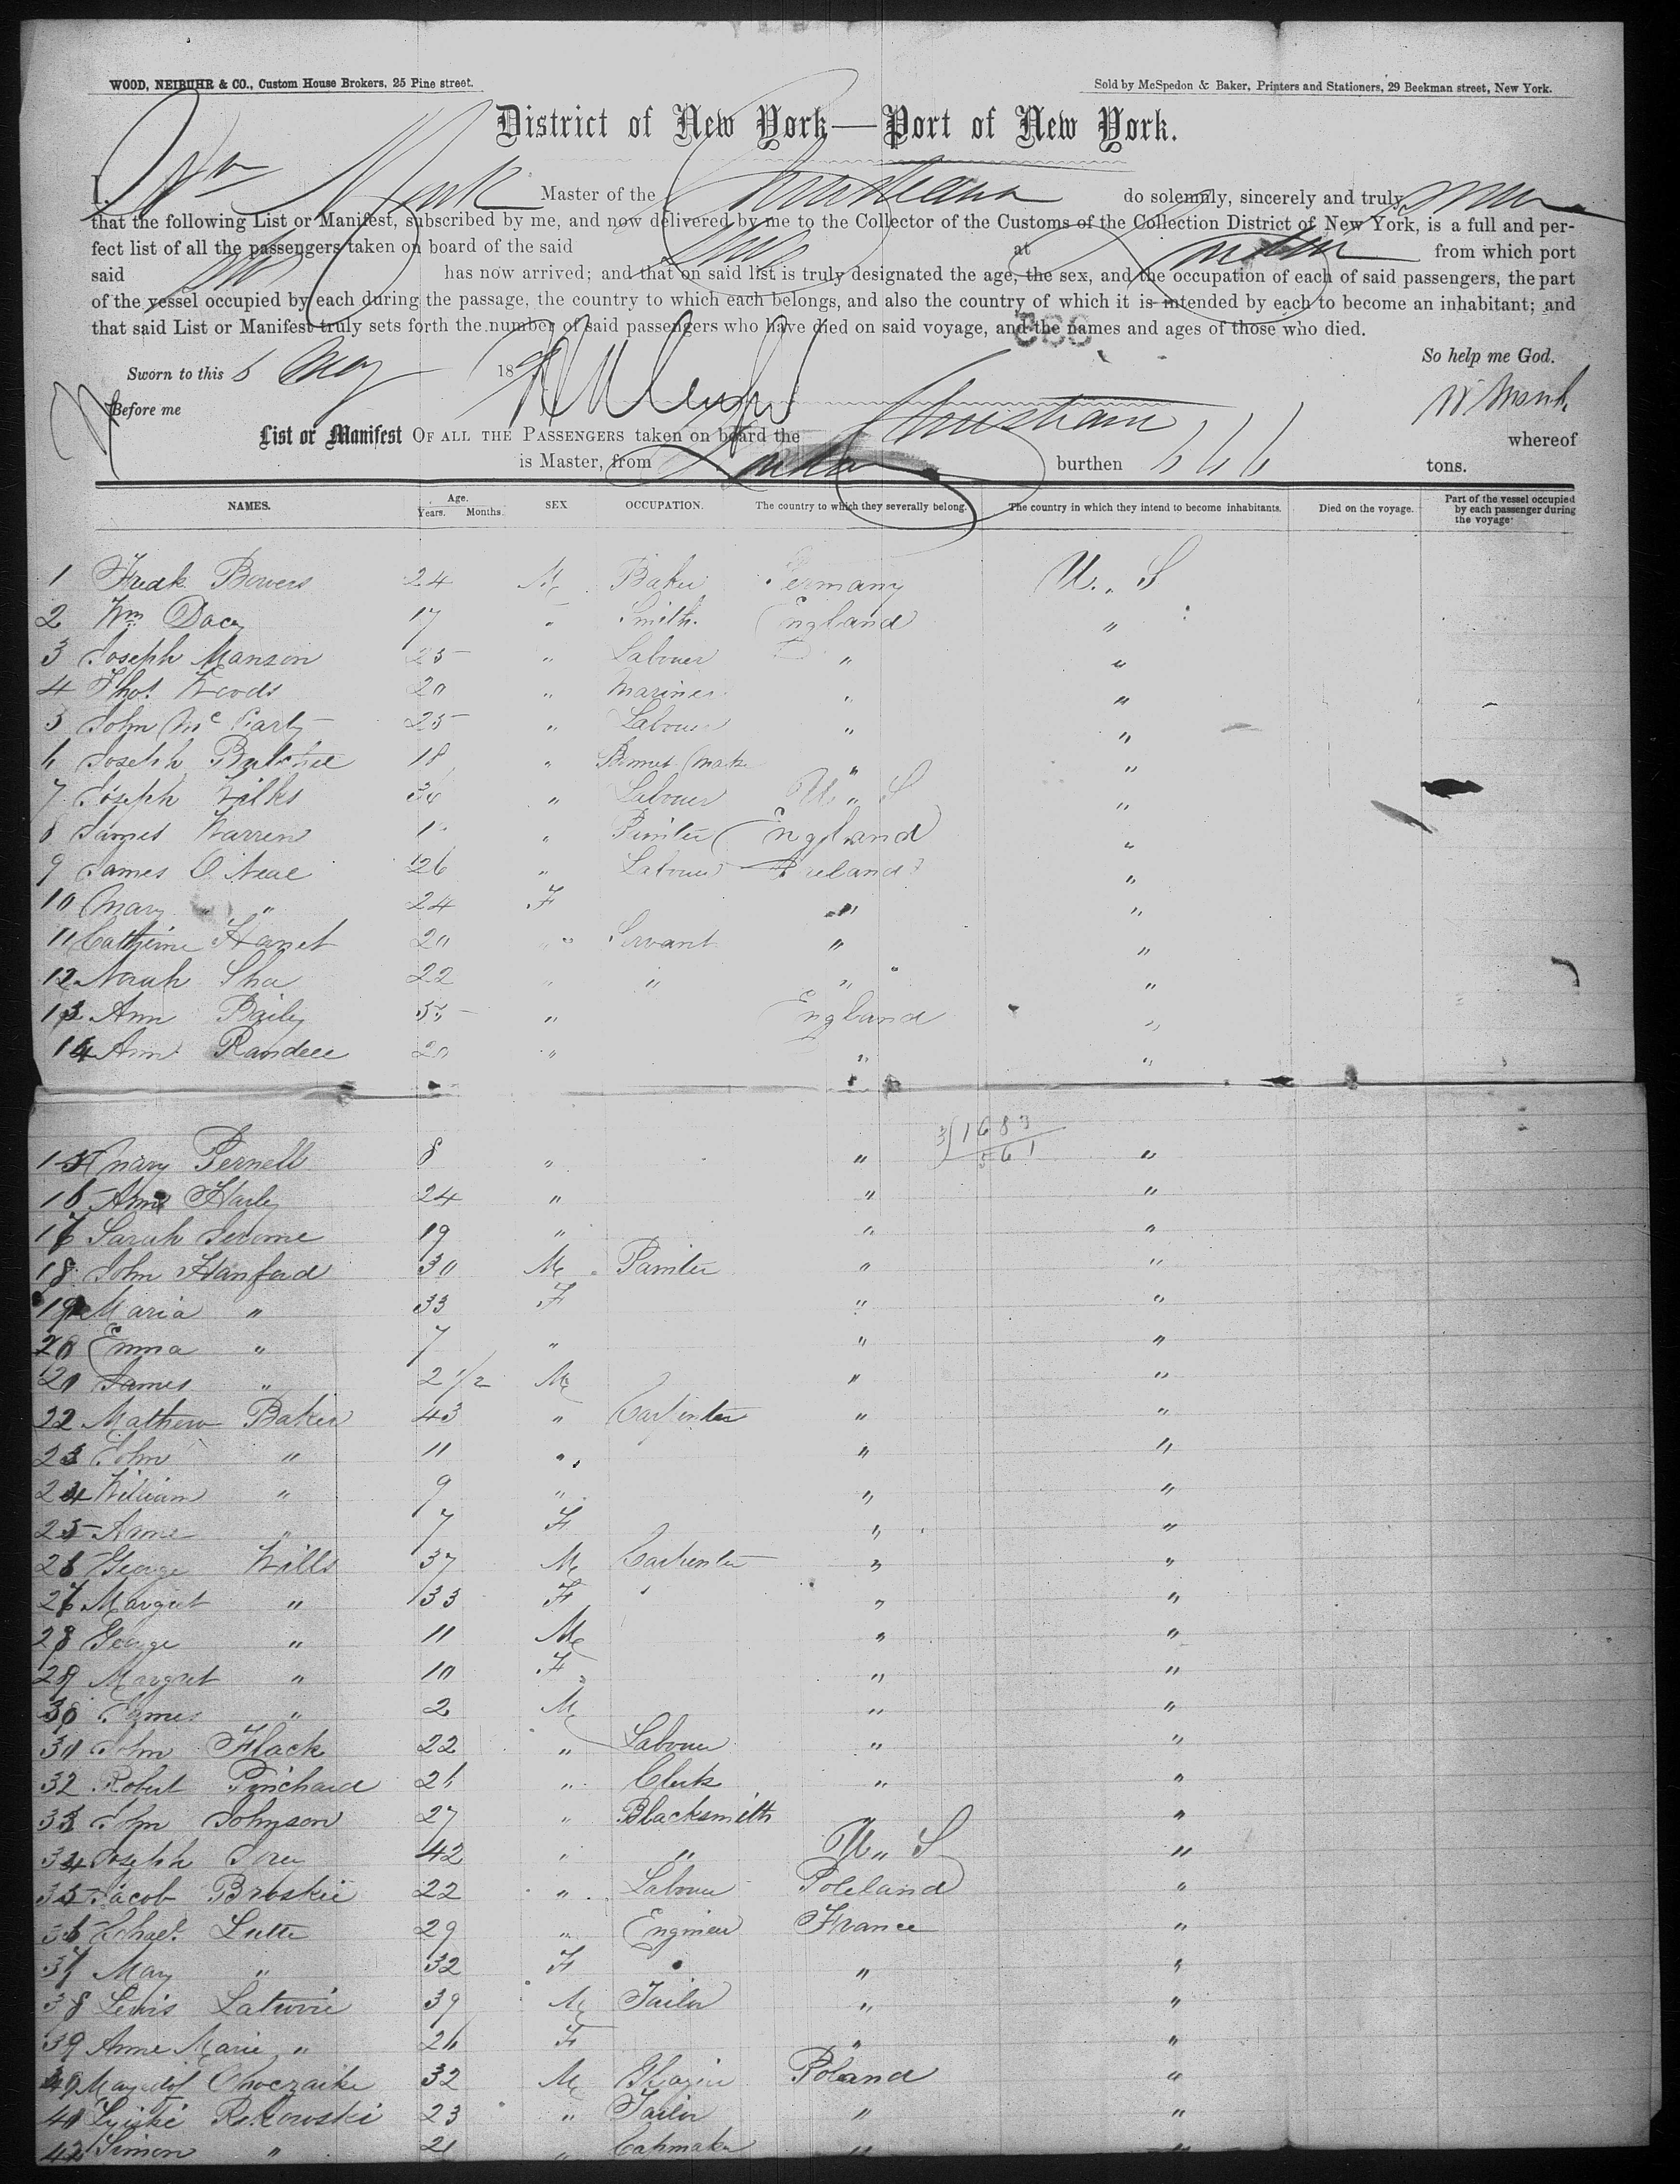 WOOD, NEIBUHR & CO., Custom House Brokers, 25 Pine street. Sold by McSpedon & Baker, Printers and Stationers, 29 Beekman street, New York.
District of New York—Port of New York.
I, Wm Master of the do solemnly, sincerely and truly
that the following List or Manifest, subscribed by me, and now delivered by me to the Collector of the Customs of the Collection District of New York, is a full and per-
fect list of all the passengers taken on board of the said at from which port
said has now arrived; and that on said list is truly designated the age, the sex, and the occupation of each of said passengers, the part
of the vessel occupied by each during the passage, the country to which each belongs, and also the country of which it is intended by each to become an inhabitant; and
that said List or Manifest truly sets forth the number of said passengers who have died on said voyage, and the names and ages of those who died.
So help me God.
Sworn to this 5 May 18
Before me
List or Manifest OF ALL THE PASSENGERS taken on board the whereof
is Master, from London burthen 666 tons.
NAMES. Age. Years. Months. SEX OCCUPATION. The country to which they severally belong. The country in which they intend to become inhabitants. Died on the voyage. Part of the vessel occupied by each passenger during the voyage
1 Fredk Bowers 24 M Baker Germany U.. S
2 Wm Dacy 17 " Smith England "
3 Joseph Manson 25 " Labouer " "
4 Thos Woods 20 " Mariner " "
5 John McCarty 25 " Labouer " "
6 Joseph 18 " " "
7 Joseph Wilks " Labouer U " S "
8 James Warren " England "
9 James O Neal 26 " Labouer Ireland "
10 Mary " 24 F " "
11 Catherine 20 " Servant " "
12 Norah Sha 22 " " " "
13 Ann Baily " England "
14 Ann Randell 20 " " "
3)1683
561
15 Mary Pernell 8 " " "
16 Ann Harley 24 " " "
17 Sarah Jerome 19 " " "
18 John Hanford 30 M Painter " "
19 Maria " 33 F " "
20 Emma " 7 " " "
21 James " 2 1/2 M " "
22 Mathew Baker 43 " Carpenter " "
23 John " 11 " " "
24 William " 9 " " "
25 Anne " 7 F " "
26 George Wills 37 M Carpenter " "
27 Margret " 33 F " "
28 George " 11 M " "
29 Margret " 10 F " "
30 James " 2 M " "
31 John Flack 22 " Labouer " "
32 Robert Prichard 26 " Clerk " "
33 John Johnson 27 " Blacksmith " "
34 Joseph 42 " " U " S "
35 Jacob Broskie 22 " Labouer Poleland "
36 Lutte 29 " Engineer France "
37 May " 32 F " "
38 Lewis 39 M Tailor " "
39 Anne Marie " 26 F " "
40 32 M Glazier Poland "
41 23 " Tailor " "
42 Simon " 21 " Capmaker " "